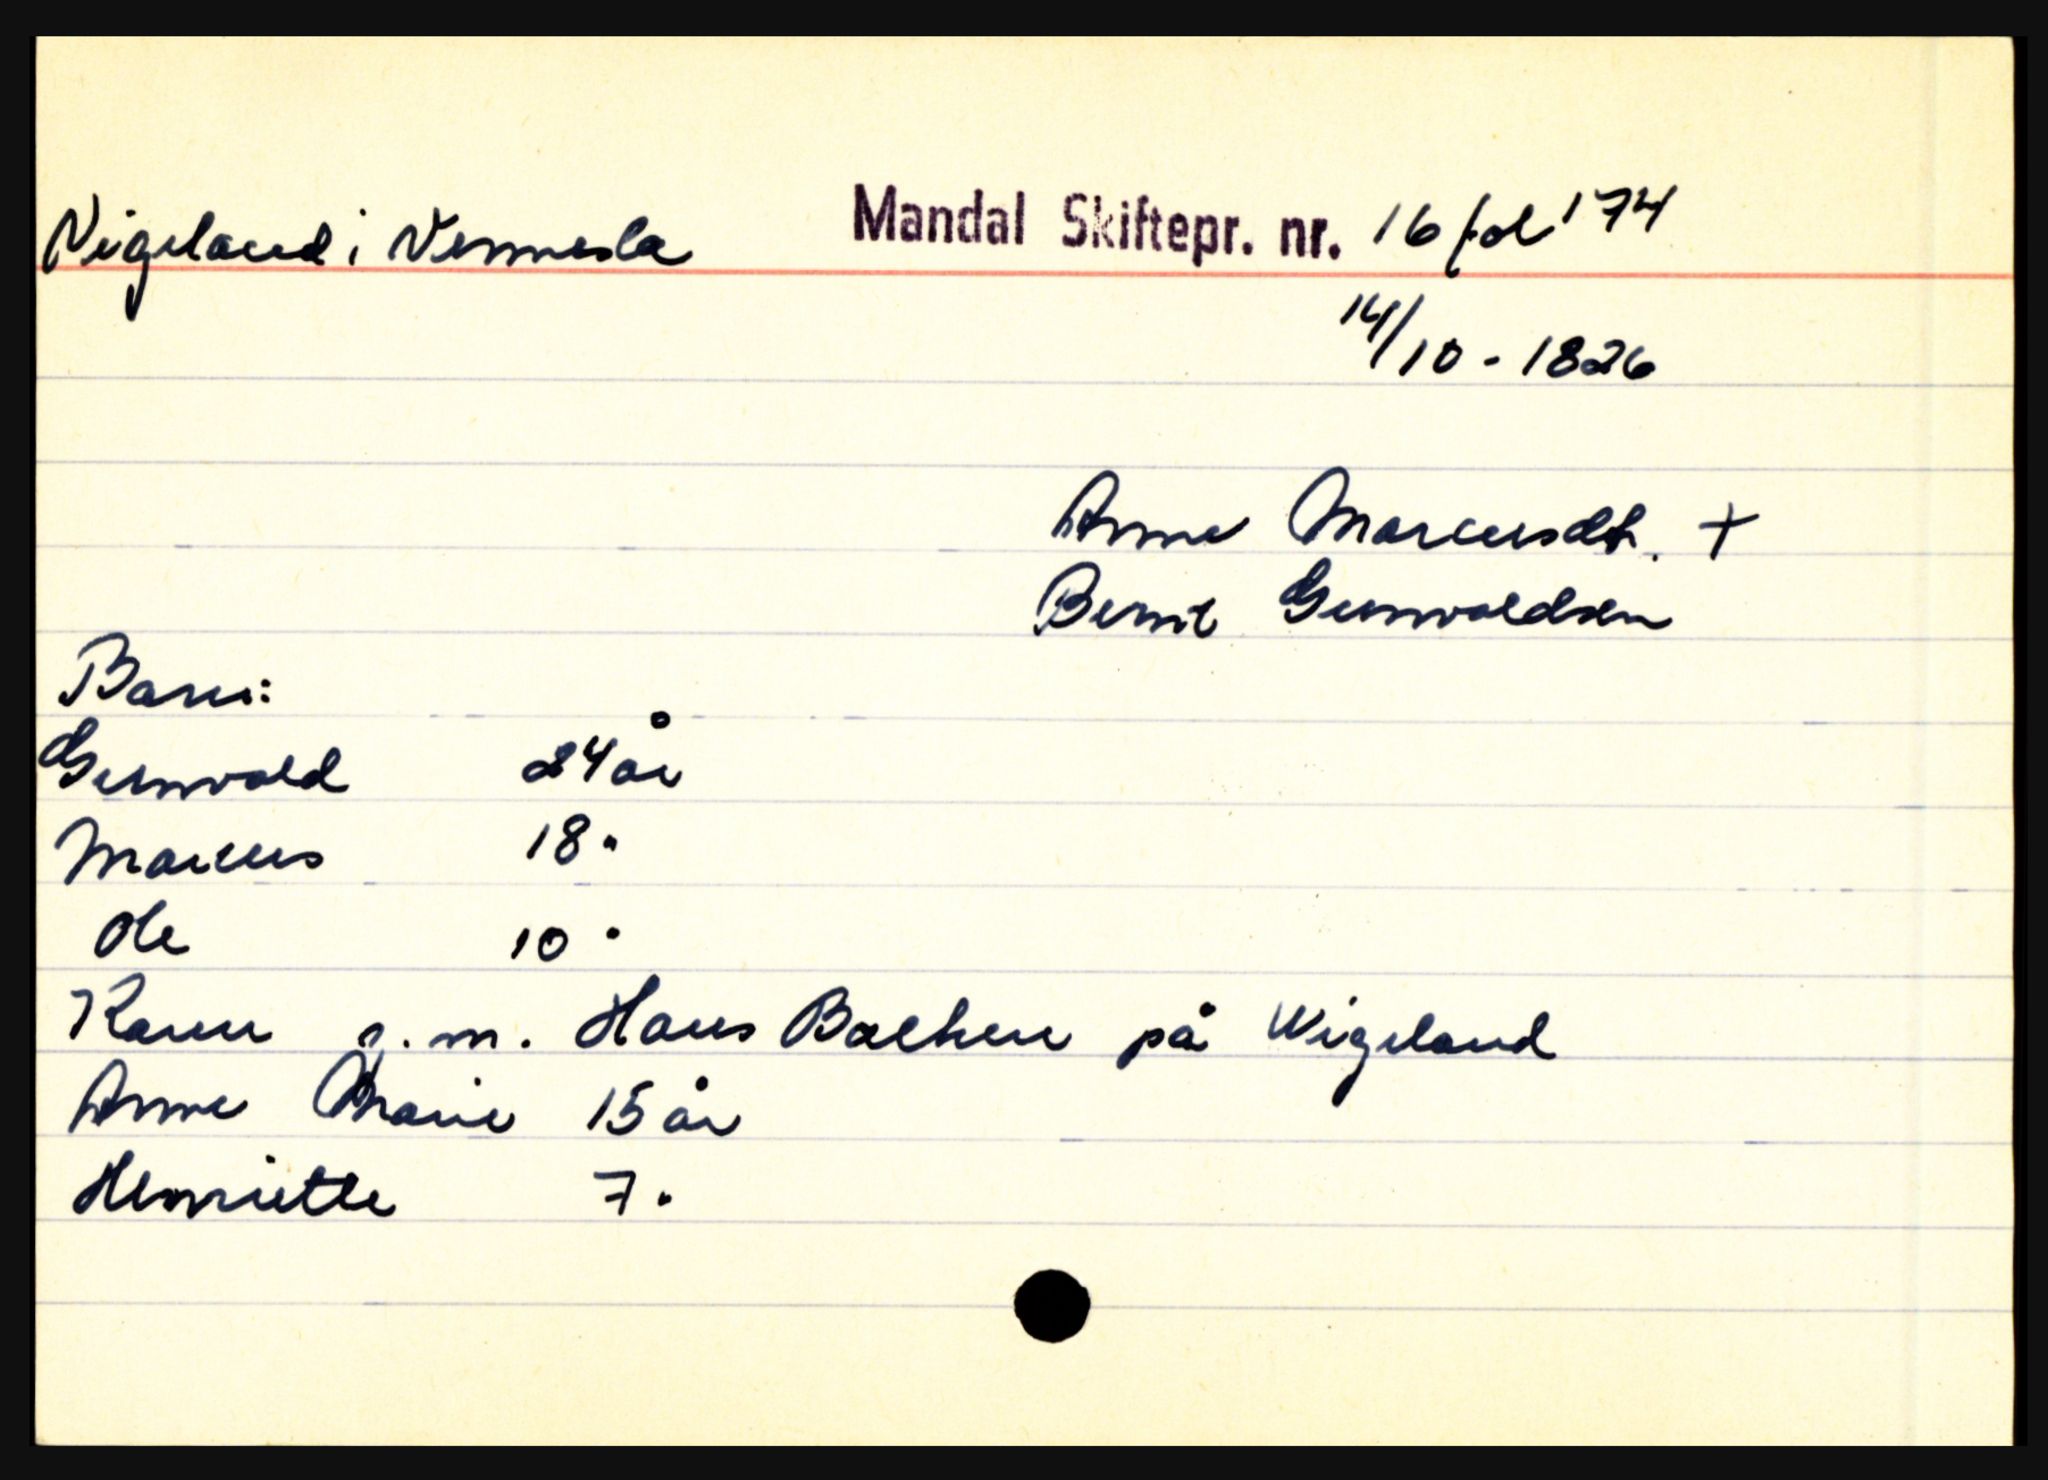 Vigeland i Vennesla Mandal Skiftepr. nr. 16 fol 174
14/10 - 1826
Anne Marcusdt. +
Bernt Gunvaldsen
Barn:
Gunvald 24 år
Marcus 18 "
Ole 10 "
Karen g.m. Hans Balchen på Wigeland
Anne Marie 15 år
Henriette 7 "